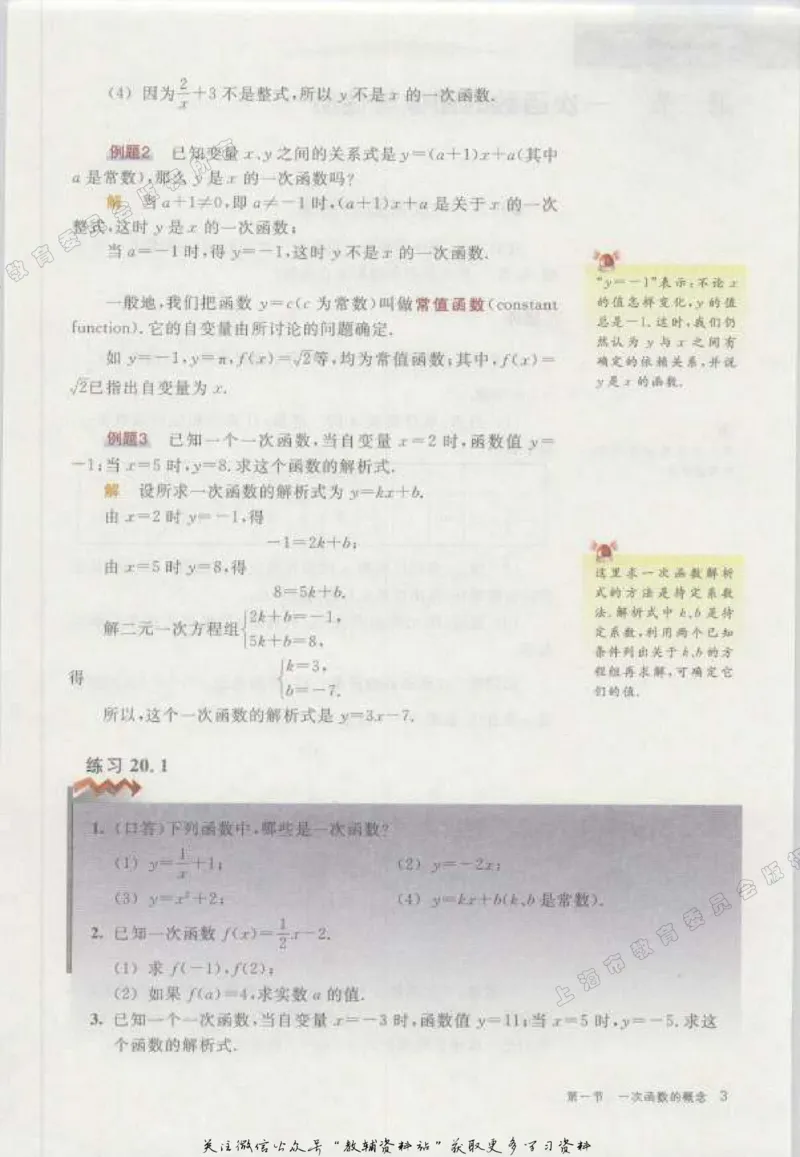 (4) 因为2/x+3不是整式,所以 y 不是 x 的一次函数.
例题2 已知变量 x、y 之间的关系式是 y=(a+1)x+a(其中
a 是常数),那么 y 是 x 的一次函数吗?
解 当 a+1≠0,即 a≠-1 时,(a+1)x+a 是关于 x 的一次
整式,这时 y 是 x 的一次函数;
当 a=-1 时,得 y=-1,这时 y 不是 x 的一次函数.
“y=-1”表示:不论 x
的值怎样变化,y 的值
总是-1.这时,我们仍
然认为 y 与 x 之间有
确定的依赖关系,并说
y 是 x 的函数.
一般地,我们把函数 y=c(c 为常数)叫做常值函数(constant
function).它的自变量由所讨论的问题确定.
如 y=-1,y=π,f(x)=√2等,均为常值函数;其中,f(x)=
√2已指出自变量为 x.
例题3 已知一个一次函数,当自变量 x=2 时,函数值 y=
-1;当 x=5 时,y=8.求这个函数的解析式.
解 设所求一次函数的解析式为 y=kx+b.
由 x=2 时 y=-1,得
-1=2k+b;
由 x=5 时 y=8,得
8=5k+b.
解二元一次方程组{2k+b=-1,
5k+b=8,
得 {k=3,
b=-7.
所以,这个一次函数的解析式是 y=3x-7.
这里求一次函数解析
式的方法是待定系数
法.解析式中 k、b 是待
定系数,利用两个已知
条件列出关于 k、b 的方
程组再求解,可确定它
们的值.
练习 20.1
1. (口答)下列函数中,哪些是一次函数?
(1) y=1/x+1; (2) y=-2x;
(3) y=x²+2; (4) y=kx+b(k、b 是常数).
2. 已知一次函数 f(x)=1/2x-2.
(1) 求 f(-1),f(2);
(2) 如果 f(a)=4,求实数 a 的值.
3. 已知一个一次函数,当自变量 x=-3 时,函数值 y=11;当 x=5 时,y=-5.求这
个函数的解析式.
第一节 一次函数的概念 3
上海市教育委员会版权
教育委员会版权所有
关注微信公众号“教辅资料站”获取更多学习资料